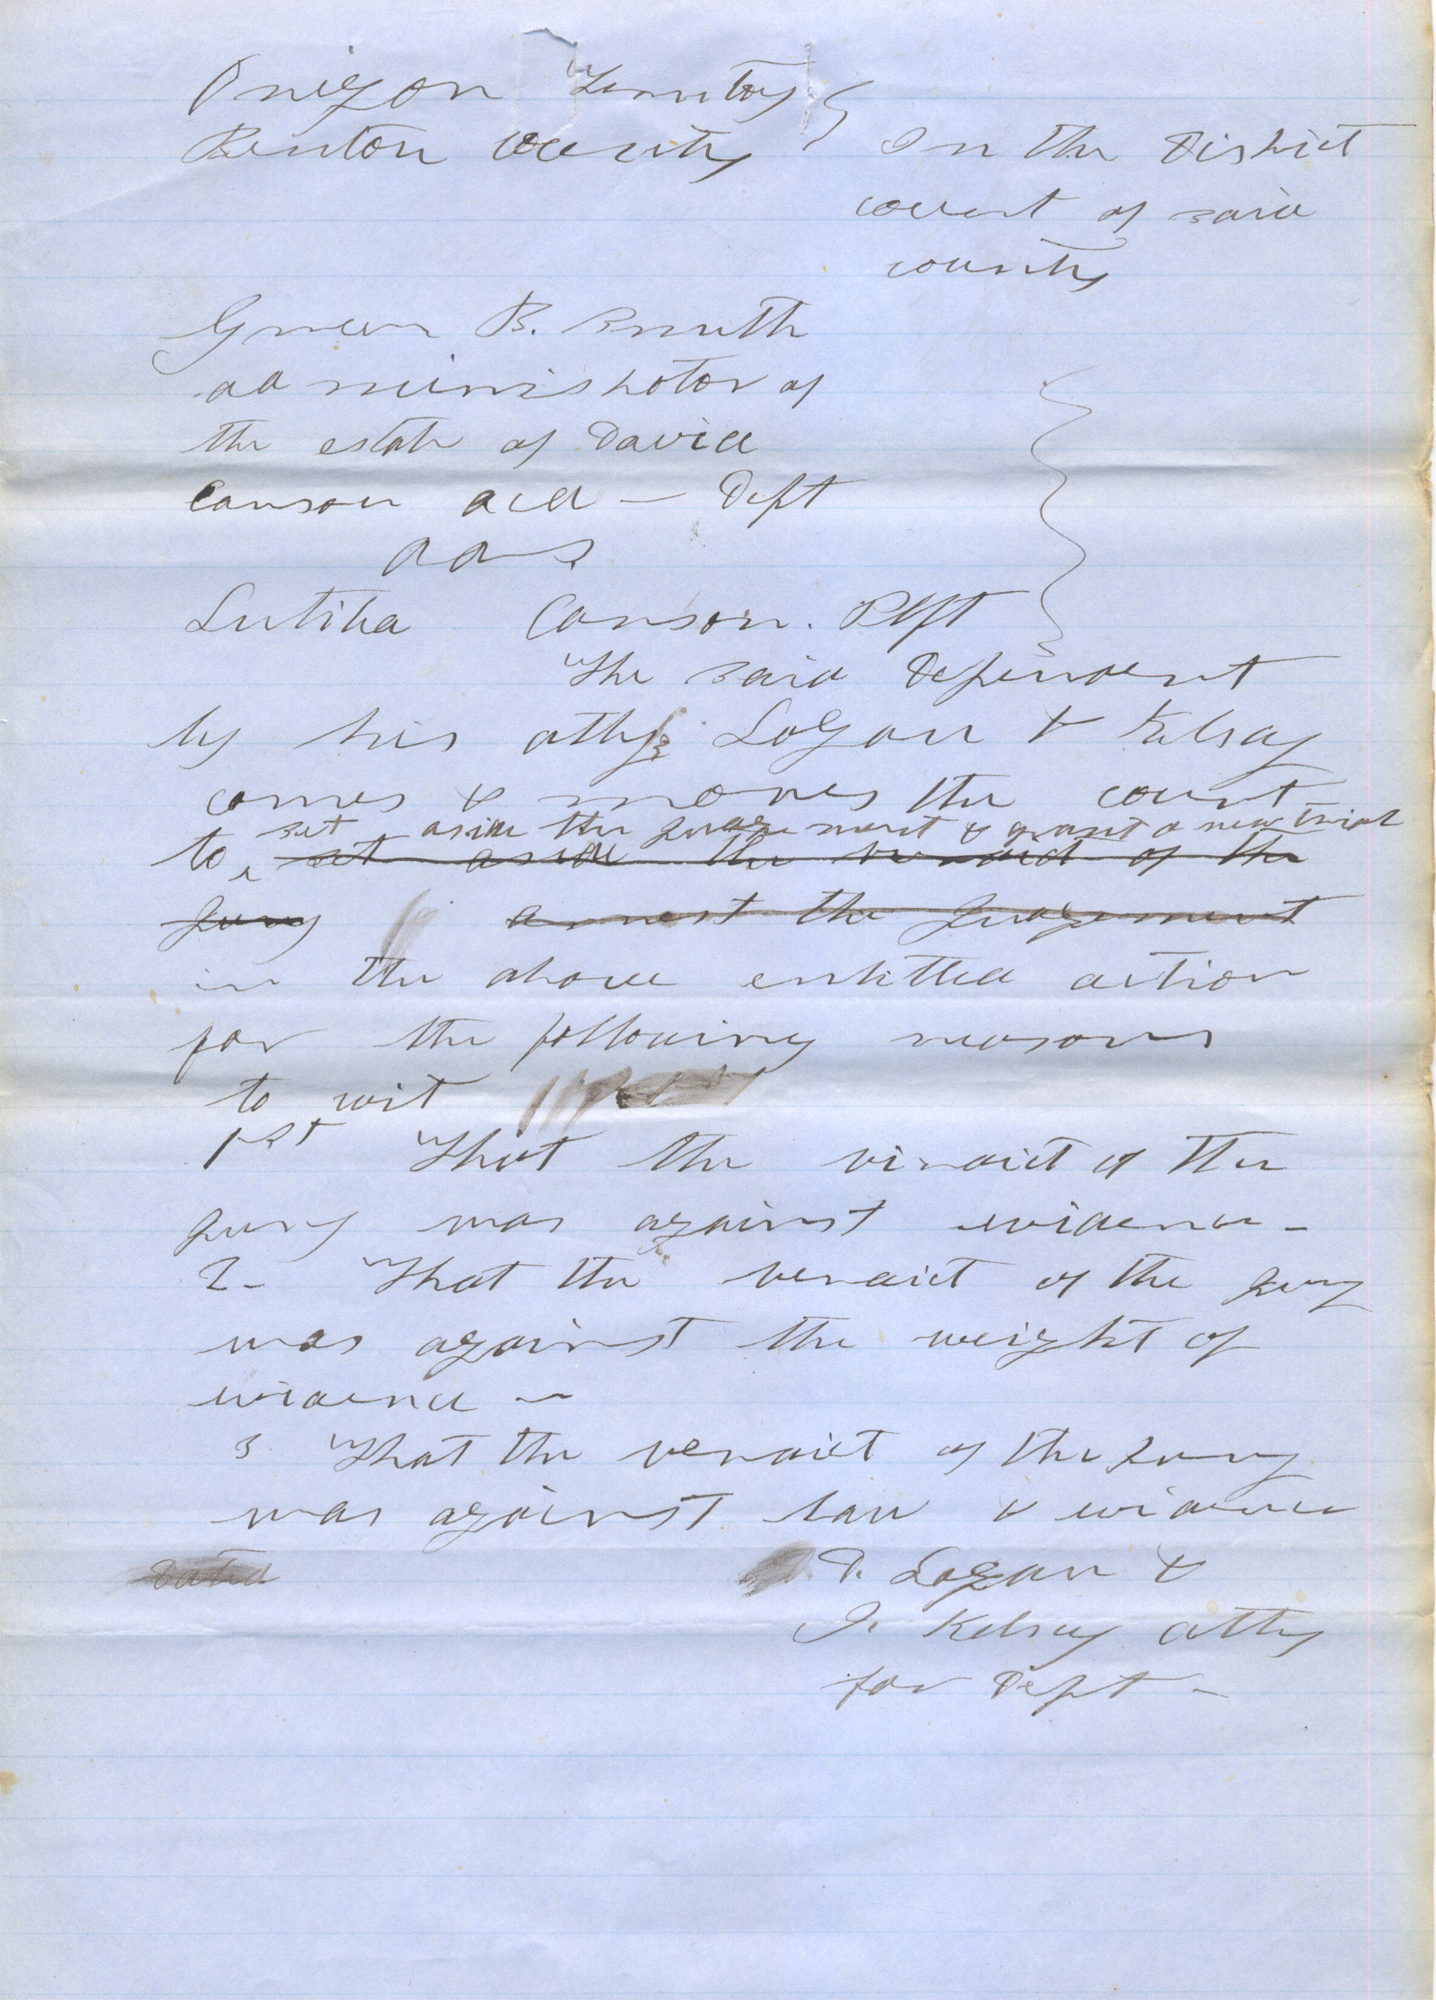 Oregon Territory
Benton County
In the District
court of said
county
Green B. Smith
administrator of
the estate of David
Carson dcd — Deft
ads
Lutitia Carson. Plft
The said Defendent
by his attys Logan & Kelsay
comes & moves the court
set aside the judgement & grant a new trial
to set aside the verdict of the
jury arrest the judgement
in the above entitled action
for the following reasons
to wit
1st That the verdict of the
jury was against evidence –
2 – That the verdict of the jury
was against the weight of
evidence –
3 That the verdict of the jury
was against law & evidence
Dated
D. Logan &
J. Kelsay attys
for Deft –